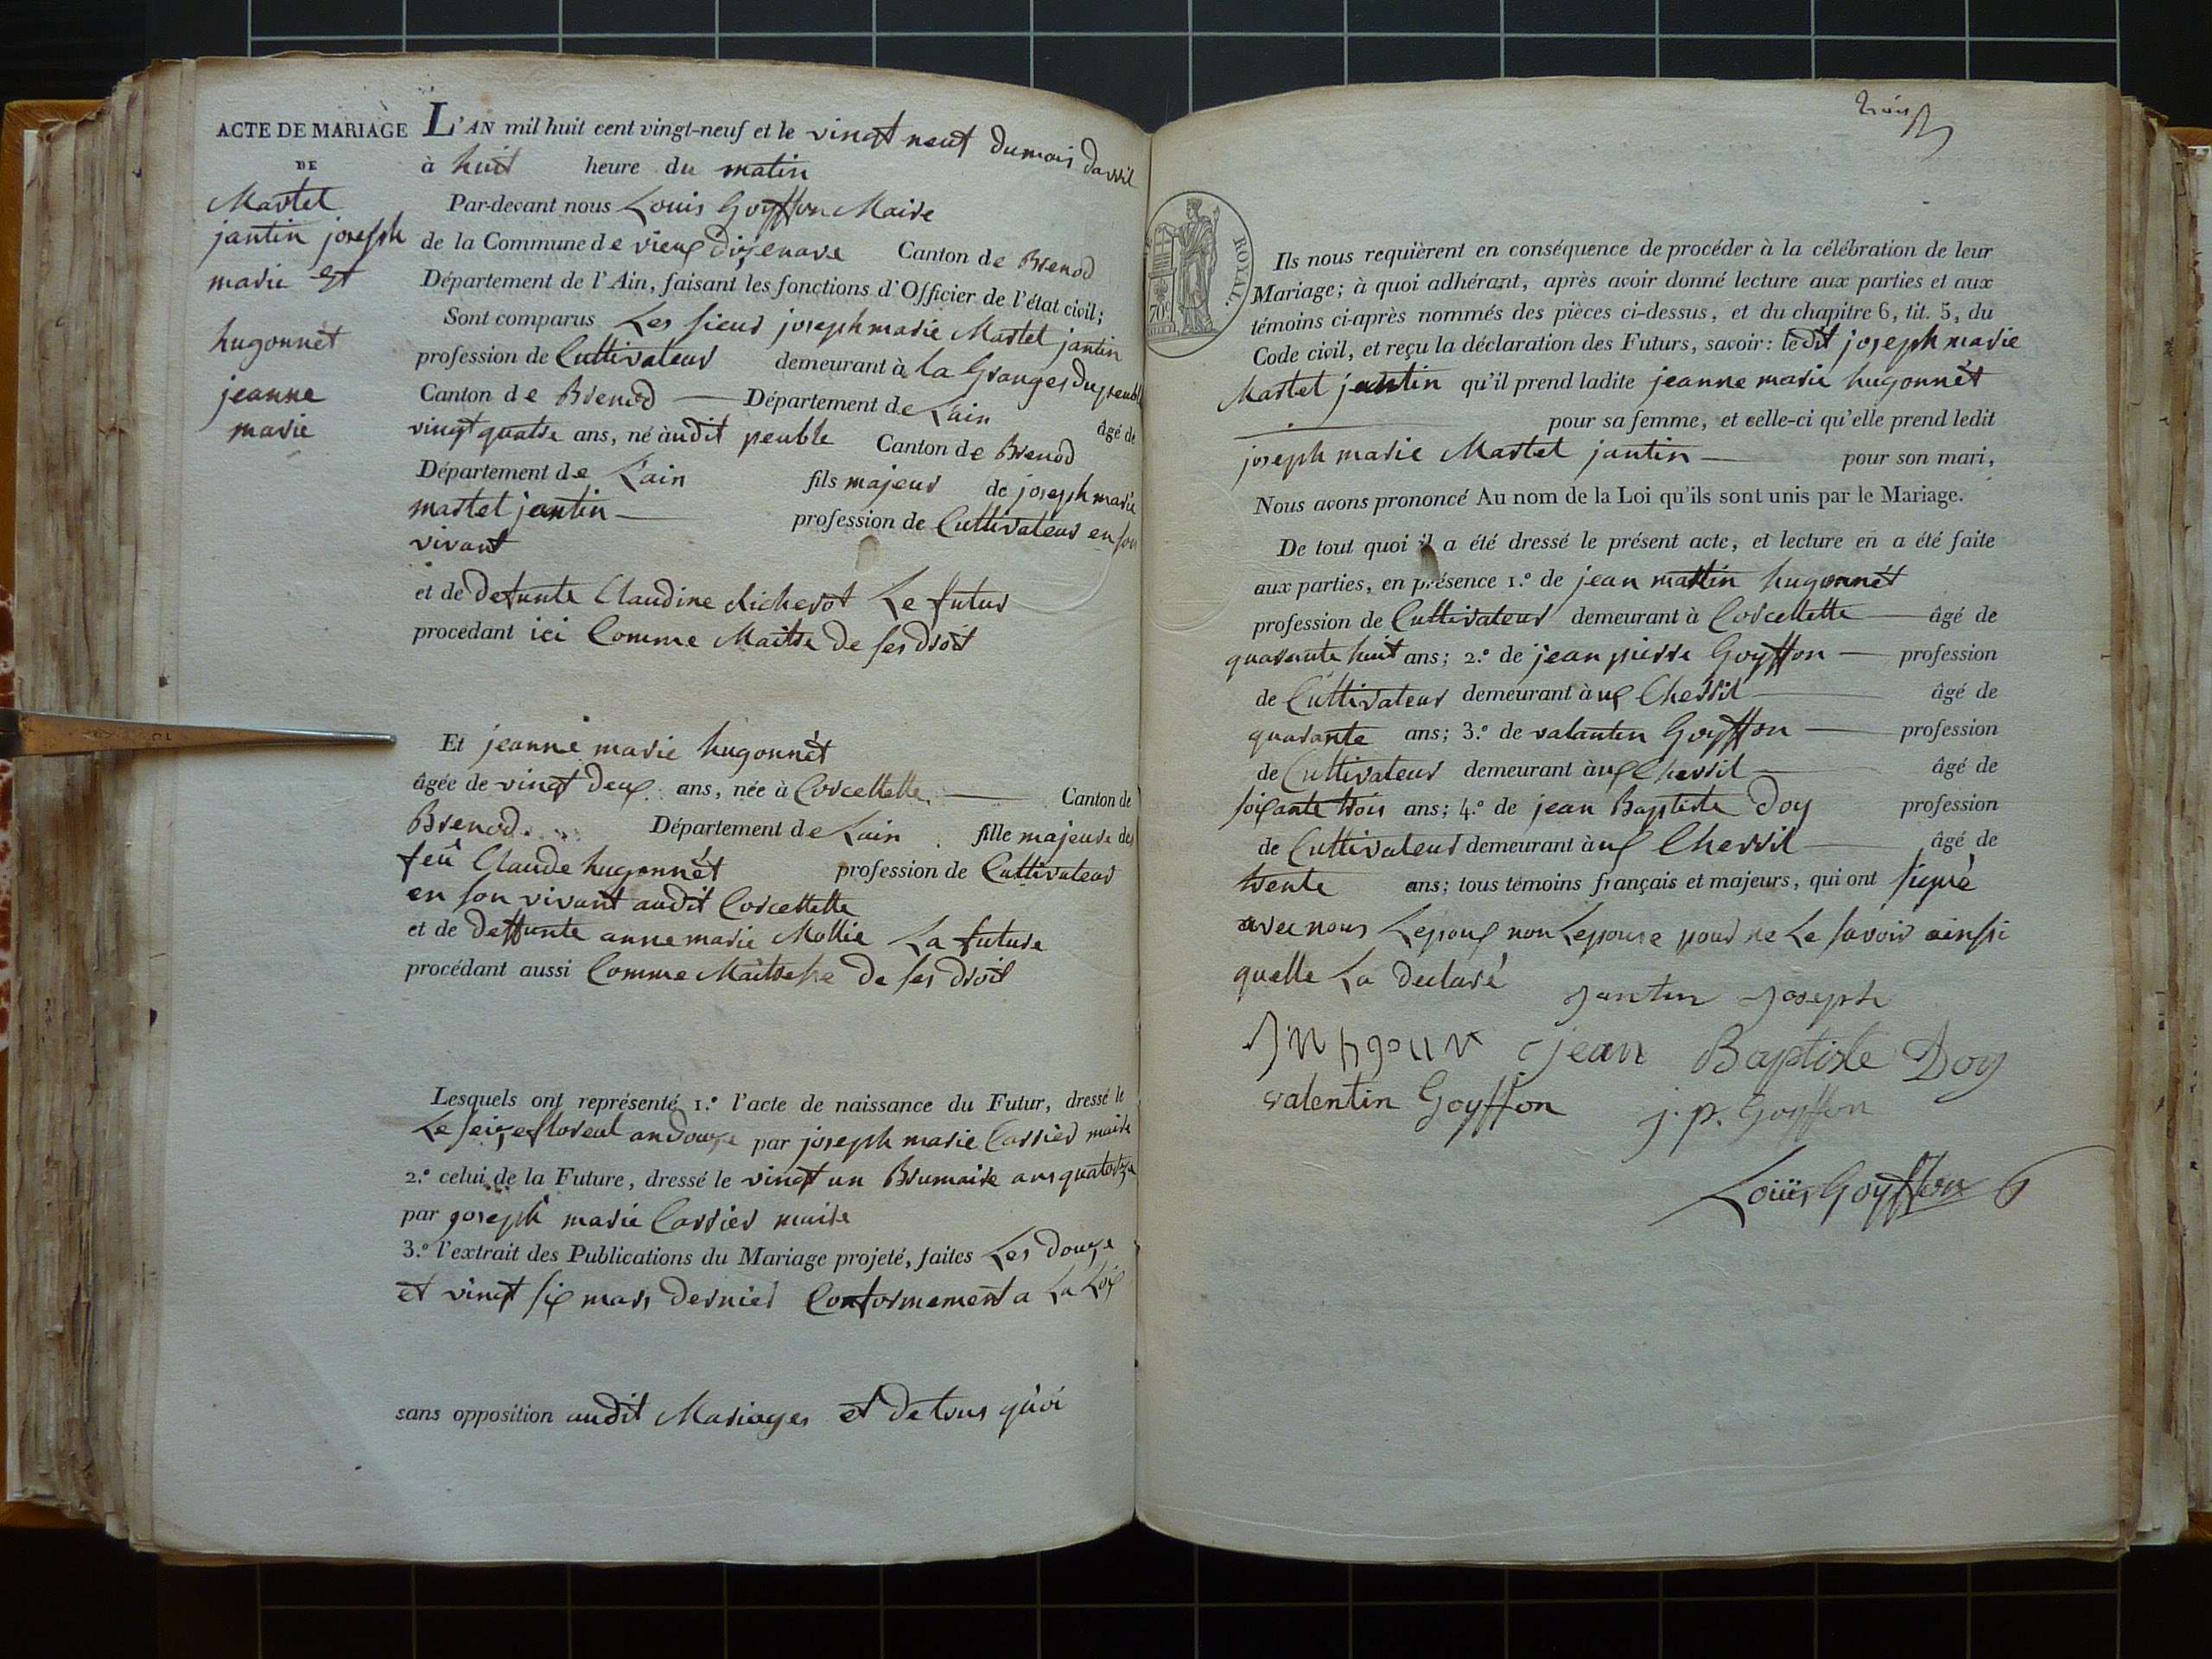 ACTE DE MARIAGE
DE
Martel
jantin joseph
marie et
hugonnét
jeanne
marie
L'AN mil huit cent vingt-neuf et le vingt neuf du mois davril
à huit heure du matin
Par-devant nous Louis Goyffon Maire
de la Commune de vieux dizenave Canton de Brenod
Département de l'Ain, faisant les fonctions d'Officier de l'état civil;
Sont comparus Les sieur joseph marie Martel jantin
profession de Cultivateur demeurant à la Granges du peuble
Canton de Brenod Département de Lain âgé de
vingt quatre ans, né àudit peuble Canton de Brenod
Département de Lain fils majeur de joseph marie
martel jantin profession de Cultivateur en son
vivant
et de defunte Claudine Richerot Le futur
procédant ici Comme Maitre de ses droit
Et jeanne marie hugonnét
âgée de vingt deux ans, née à Corcellette Canton de
Brenod Département de Lain fille majeure de
feû Claude hugonnét profession de Cultivateur
en son vivant audit Corcellette
et de deffunte anne marie Mollie La future
procédant aussi Comme Maitresse de ses droit
Lesquels ont représenté 1.º l'acte de naissance du Futur, dressé le
Le seize floreal an douze par joseph marie Carrier maire
2.º celui de la Future, dressé le vingt un Brumaire ans quatorze
par joseph marie Carrier maire
3.º l'extrait des Publications du Mariage projeté, faites Les douze
et vingt six mars dernier Conformement a La Loix
sans opposition audit Mariages et de tous quòi
ROYAL.
70
Ils nous requièrent en conséquence de procéder à la célébration de leur
Mariage; à quoi adhérant, après avoir donné lecture aux parties et aux
témoins ci-après nommés des pièces ci-dessus, et du chapitre 6, tit. 5, du
Code civil, et reçu la déclaration des Futurs, savoir: ledit joseph marie
Martel jantin qu'il prend ladite jeanne marie hugonnét
pour sa femme, et celle-ci qu'elle prend ledit
joseph marie Martel jantin pour son mari,
Nous avons prononcé Au nom de la Loi qu'ils sont unis par le Mariage.
De tout quoi il a été dressé le présent acte, et lecture en a été faite
aux parties, en présence 1.º de jean martin hugonnét
profession de Cultivateur demeurant à Corcellette âgé de
quarante huit ans; 2.º de jean pierre Goyffon profession
de Cultivateur demeurant à ux Chevril âgé de
quarante ans; 3.º de valantin Goyffon profession
de Cultivateur demeurant à ux Chevril âgé de
soixante trois ans; 4.º de jean Baptiste Doy profession
de Cultivateur demeurant à ux Chevril âgé de
trente ans; tous témoins français et majeurs, qui ont signé
avec nous Lepoux non Lepouse pour ne Le savoir ainsi
quelle La declaré
Jantin Joseph
jean Baptiste Doy
valentin Goyffon
j. p. Goyffon
Loüis Goyffon